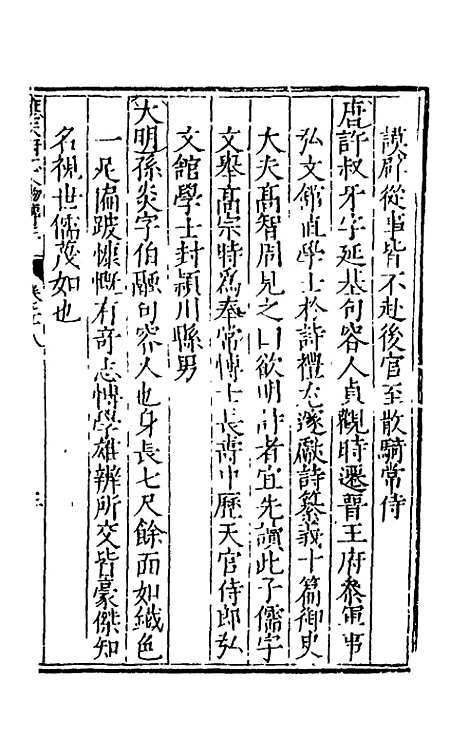 謨辟從事皆不赴後官至散騎常侍
唐許叔牙字延基句容人貞觀時遷晉王府叅軍事
弘文館直學士於詩禮尤邃獻詩纂義十篇御史
大夫高智周見之曰欲明詩者宜先讀此子儒字
文舉高宗時為奉常博士長壽中歷天官侍郎弘
文館學士封潁川縣男
大明孫炎字伯融句容人也身長七尺餘面如鐵色
一足偏跛慷慨有奇志博學雄辨所交皆豪傑知
名視世儒蔑如也